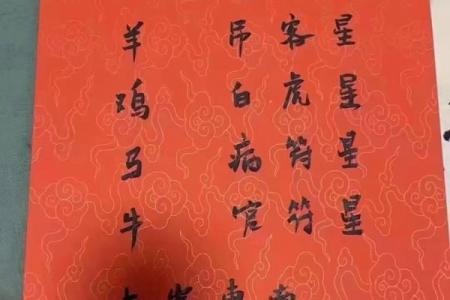 羊 吊客星
鸡 白虎星
马 病符星
牛 官符星